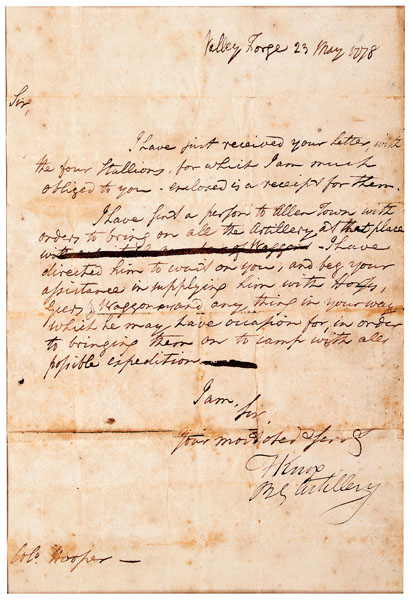 Valley Forge 23 May 1778
Sir,
I have just received your Letter, with
the four Stallions, for which I am much
obliged to you - enclosed is a receipt for them.
I have sent a person to Allen Town with
orders to bring on all the Artillery at that place
of Waggons - I have
directed him to wait on you, and beg your
assistance in supplying him with Horses,
Geers, Waggons and any thing in your way
which he may have occasion for, in order
to bringing them on to camp with all
possible expedition
I am,
Sir,
Your most obed Serv
HKnox
BG Artillery
Colo. Hooper —